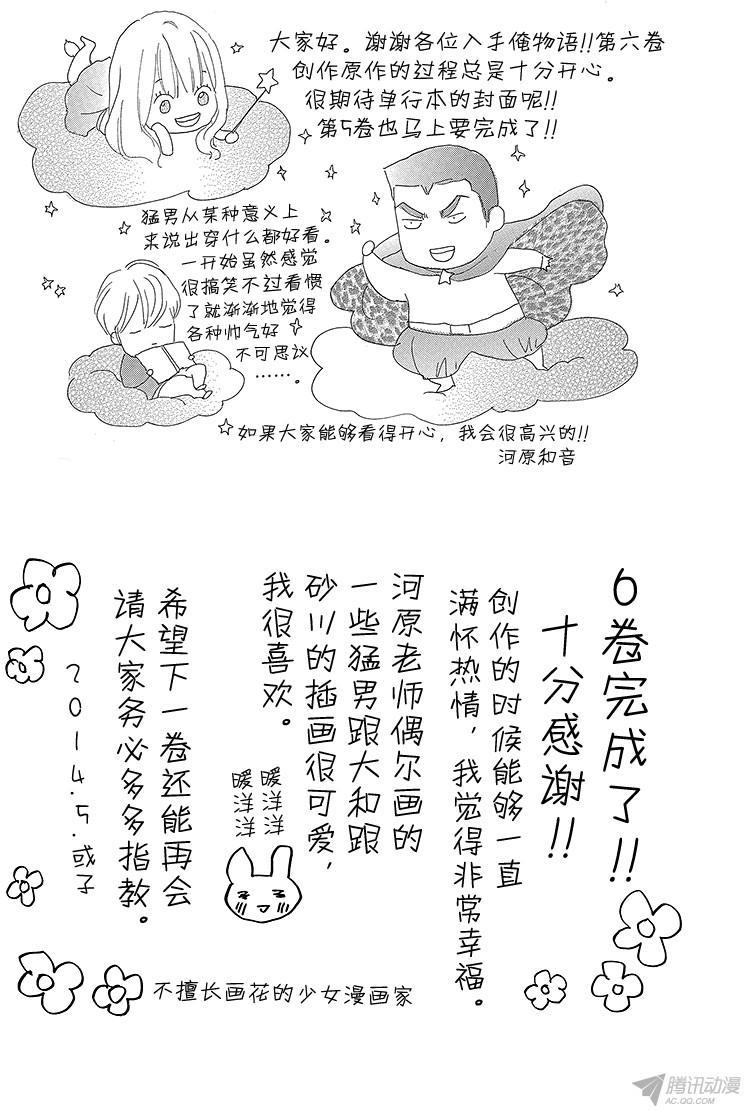 大家好。谢谢各位入手俺物语!!第六卷
创作原作的过程总是十分开心。
很期待单行本的封面呢!!
第5卷也马上要完成了!!
猛男从某种意义上
来说出穿什么都好看。
一开始虽然感觉
很搞笑不过看惯
了就渐渐地觉得
各种帅气好
不可思议
……。
如果大家能够看得开心，我会很高兴的!!
河原和音
6卷完成了!!
十分感谢!!
创作的时候能够一直
满怀热情，我觉得非常幸福。
河原老师偶尔画的
一些猛男跟大和跟
砂川的插画很可爱，
我很喜欢。
暖洋洋
暖洋洋
希望下一卷还能再会
请大家务必多多指教。
2014.5.或子
不擅长画花的少女漫画家
腾讯动漫
AC.QQ.COM